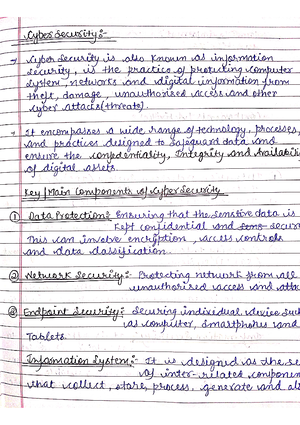 Cyber Security:-
→ Cyber Security is also known as information
security, is the practice of protecting computer
system, networks and digital information from
theft, damage, unauthorised access and other
cyber attacks (threats).
→ It encompasses a wide range of technology, processes,
and practices designed to safeguard data and
ensure the confidentiality, Integrity and Availabili
of digital assets.
Key / Main Components of Cyber Security
① Data Protection: Ensuring that the sensitive data is
kept confidential and secure
This can involve encryption, access controls
and data classification.
② Network Security: Protecting network from all
unauthorised access and attac
③ Endpoint Security: Securing individual device such
as computer, smartphones and
Tablets.
Information System:- It is designed as the se
of inter-related component
that collect, store, process, generate and als